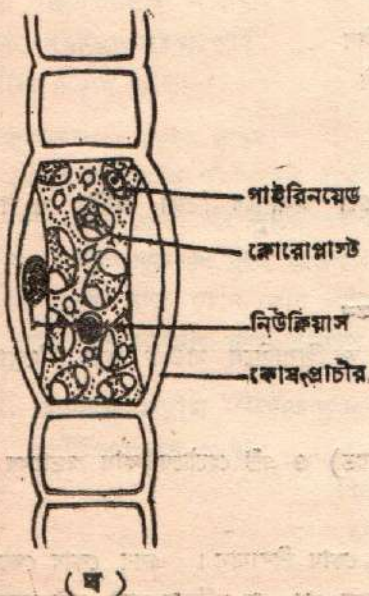 পাইরিনয়েড
ক্লোরোপ্লাস্ট
নিউক্লিয়াস
কোষপ্রাচীর
(ঘ)